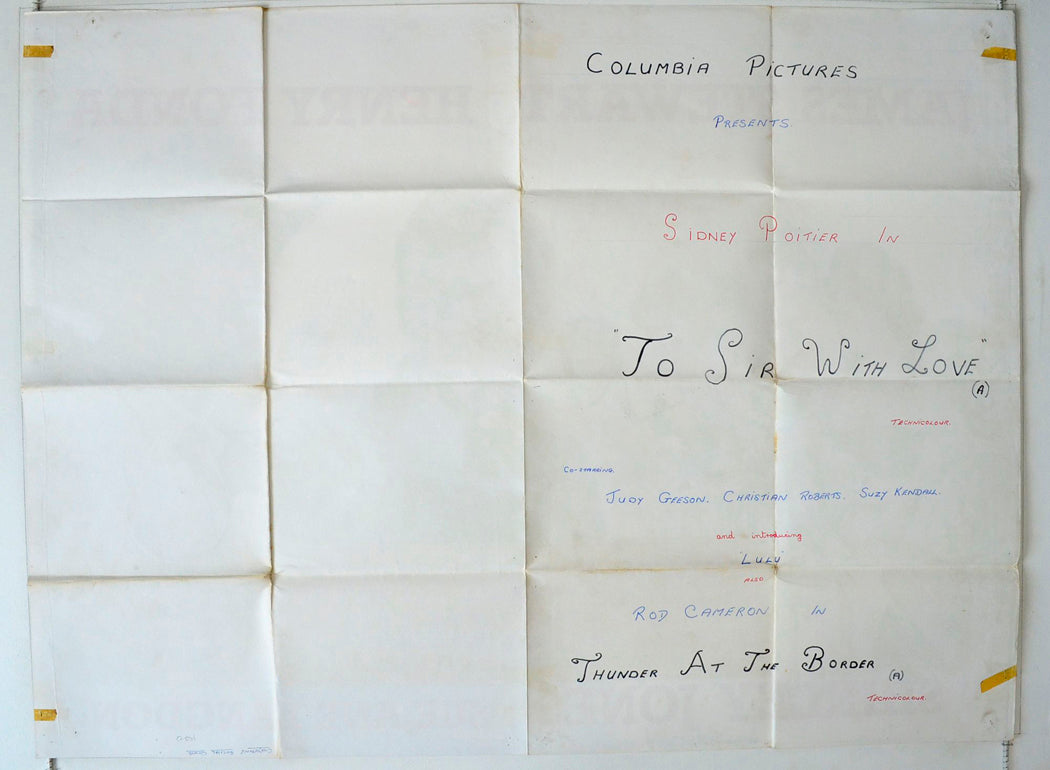 COLUMBIA PICTURES
PRESENTS.
SIDNEY POITIER IN
"TO SIR WITH LOVE"
(A)
TECHNICOLOUR.
CO-STARRING.
JUDY GEESON. CHRISTIAN ROBERTS. SUZY KENDALL.
and introducing
"LULU"
ALSO.
ROD CAMERON IN
THUNDER AT THE BORDER
(A)
TECHNICOLOUR.